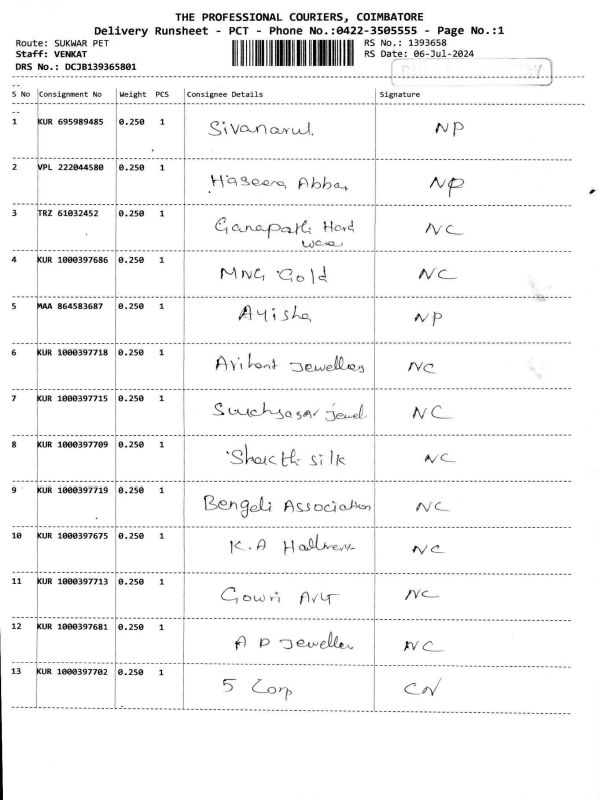 THE PROFESSIONAL COURIERS, COIMBATORE
Delivery Runsheet - PCT - Phone No.:0422-3505555 - Page No.:1
Route: SUKWAR PET RS No.: 1393658
Staff: VENKAT RS Date: 06-Jul-2024
DRS No.: DCJB139365801
S No Consignment No Weight PCS Consignee Details Signature
1 KUR 695989485 0.250 1 Sivanarul. NP
2 VPL 222044580 0.250 1 Haseena Abbas NP
3 TRZ 61032452 0.250 1 Ganapathi Hard NC
ware
4 KUR 1000397686 0.250 1 MNG Gold NC
5 MAA 864583687 0.250 1 Ayisha NP
6 KUR 1000397718 0.250 1 Arihant Jewellers NC
7 KUR 1000397715 0.250 1 Jewel. NC
8 KUR 1000397709 0.250 1 Shakthi silk NC
9 KUR 1000397719 0.250 1 Bengeli Association NC
10 KUR 1000397675 0.250 1 K.A NC
11 KUR 1000397713 0.250 1 Gowri Art NC
12 KUR 1000397681 0.250 1 A D Jeweller NC
13 KUR 1000397702 0.250 1 5 Corp CN